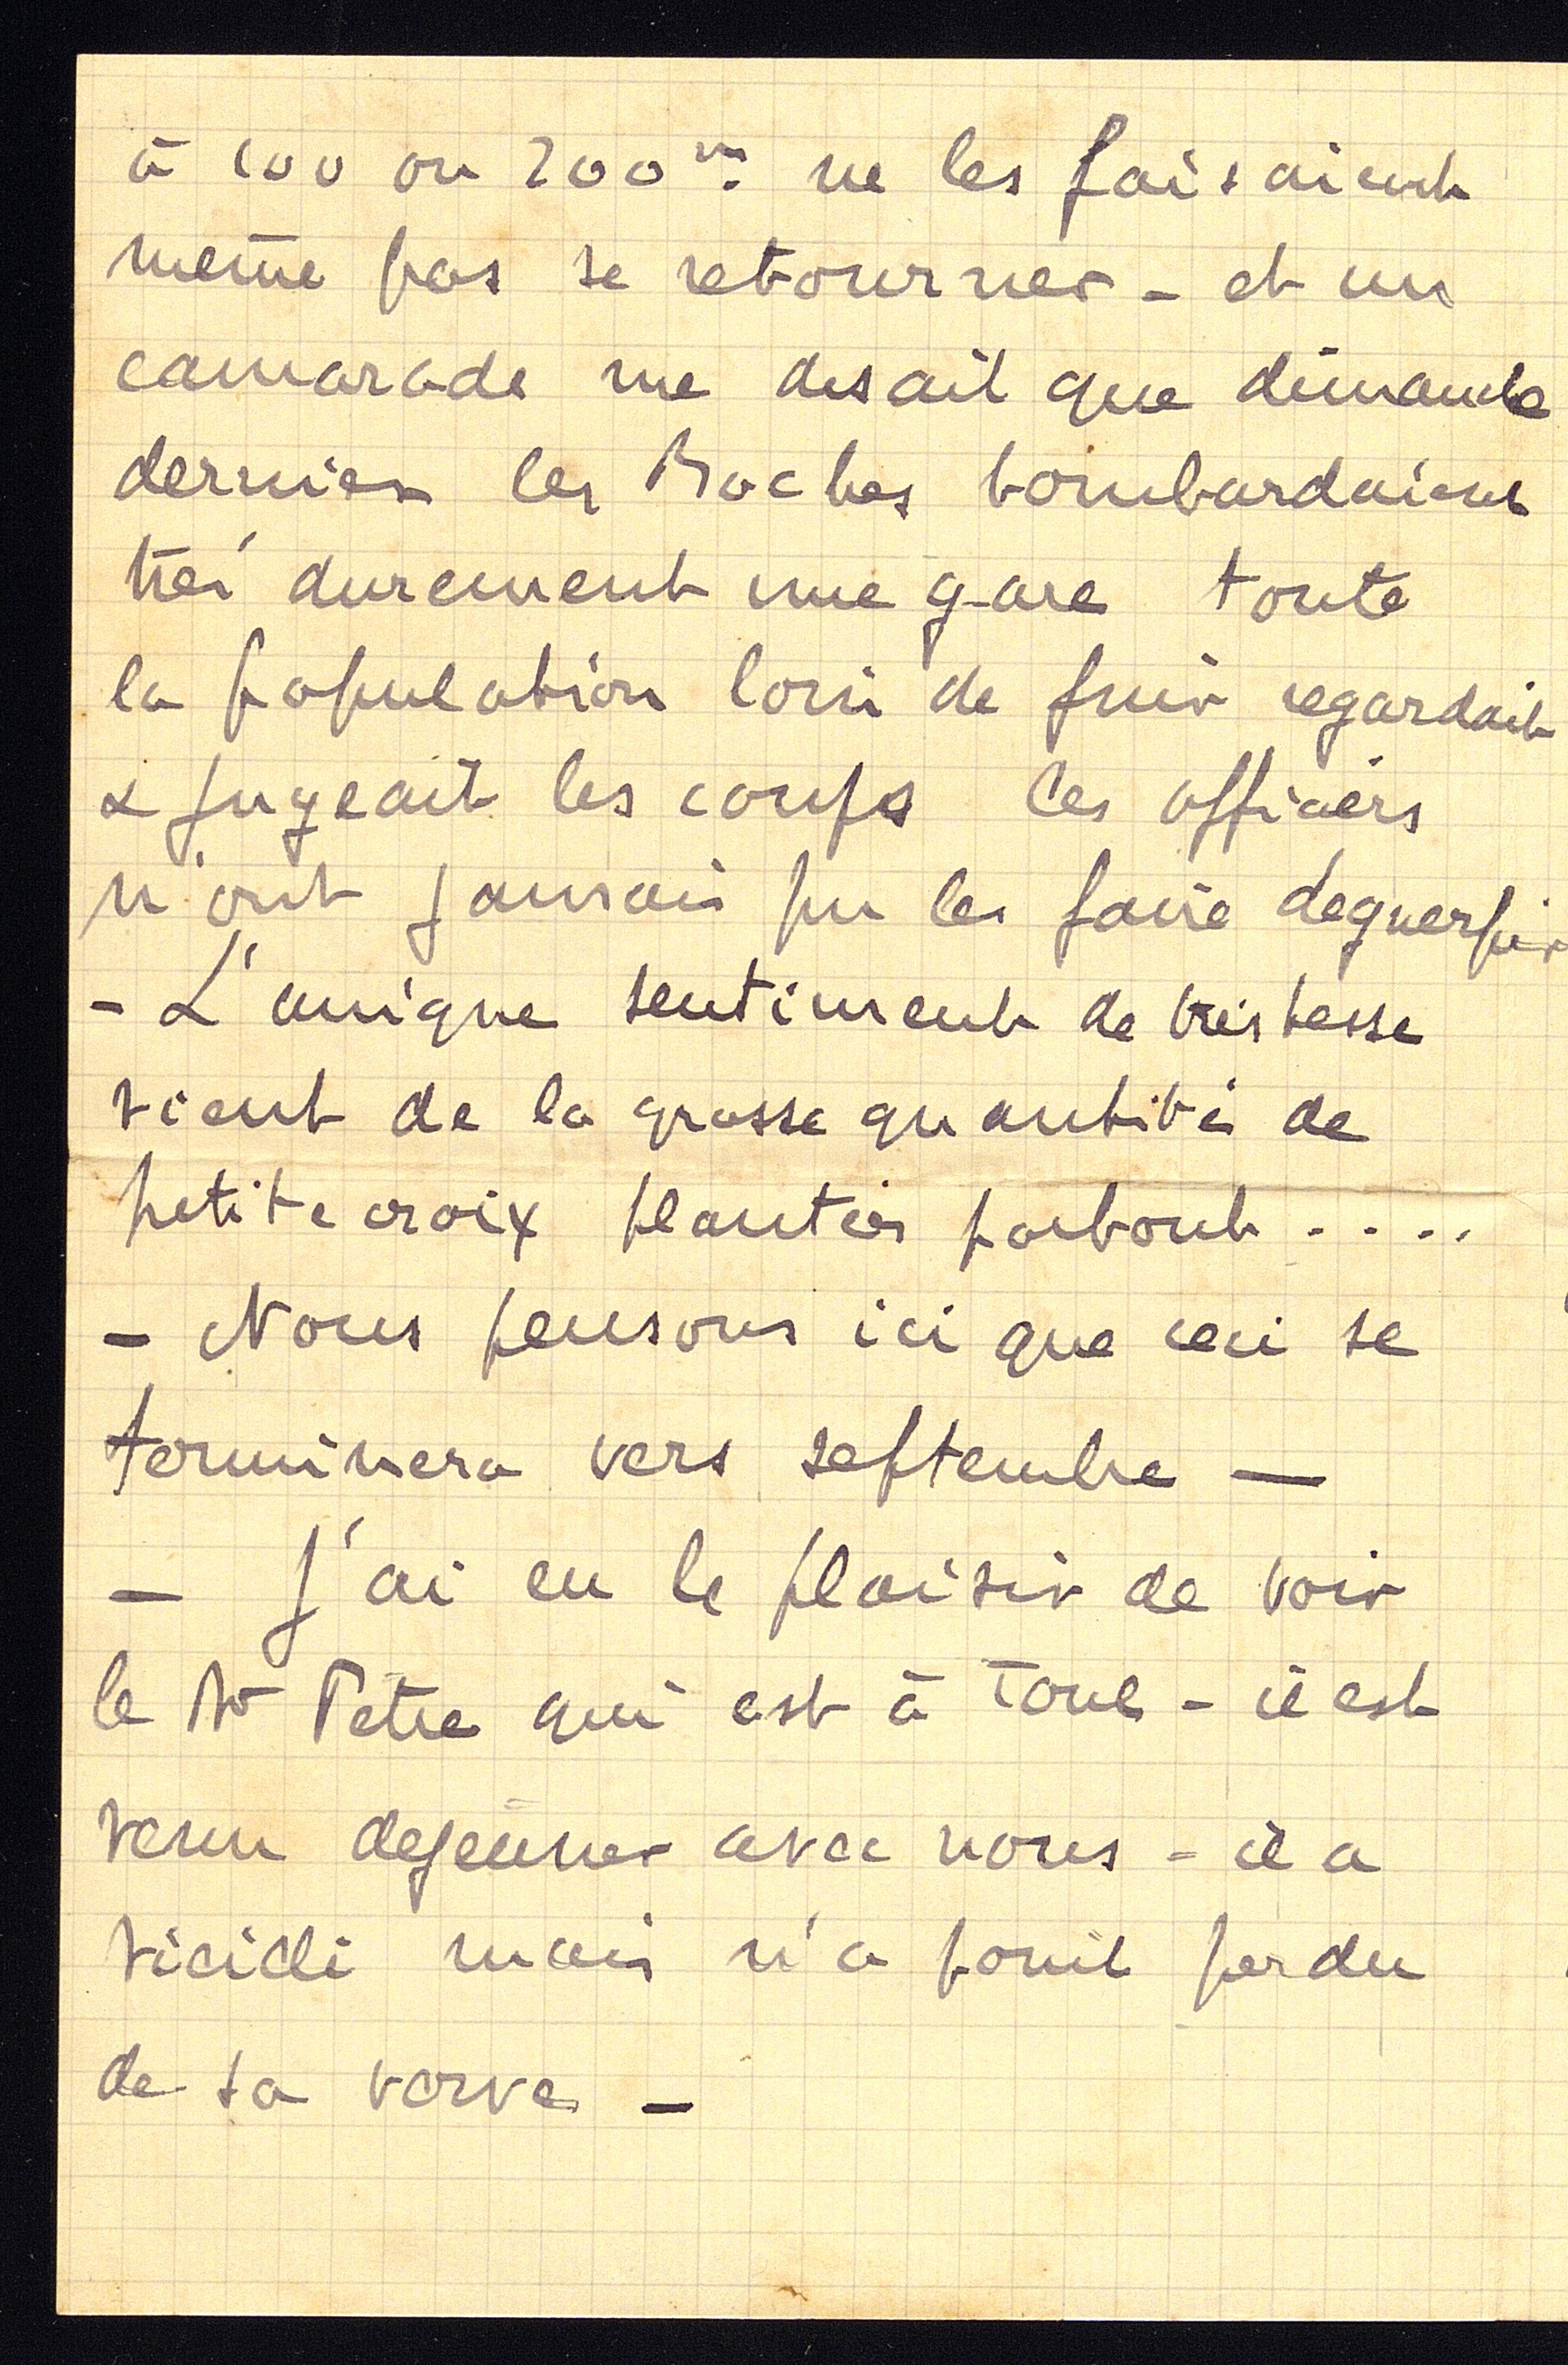 à 100 ou 200 m. ne les faisaient
même pas se retourner - et un
camarade me disait que dimanche
dernier les Boches bombardaient
très durement une gare toute
la population loin de fuir regardait
& jugeait les coups les officiers
n'ont jamais pu les faire deguerpir
- L'unique sentiment de tristesse
vient de la grosse quantité de
petite croix plantées partout ....
- Nous pensons ici que ceci se
terminera vers septembre —
- J'ai eu le plaisir de voir
le Dr Petre qui est à Toul - il est
venu dejeuner avec nous - il a
vieilli mais n'a point perdu
de sa verve -